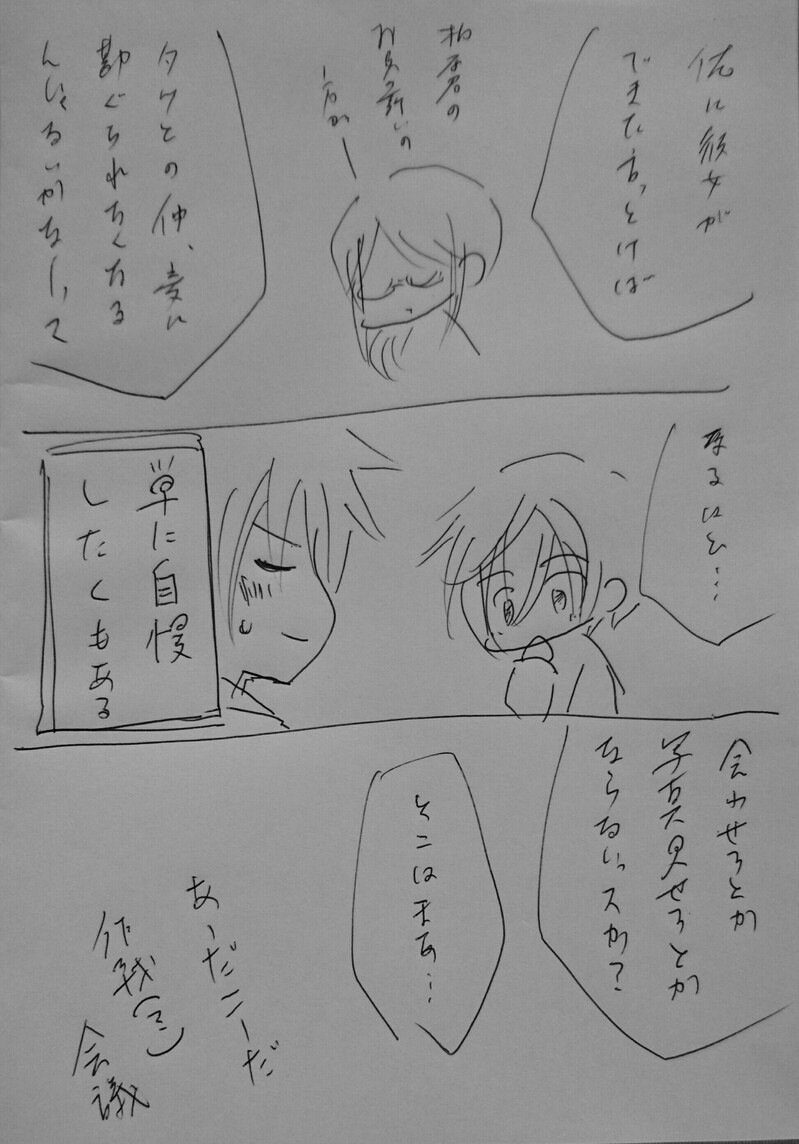 俺に彼女が
できた言っとけば
お見舞いの
タケとの仲、変に
勘ぐられなくなる
んじゃないかなーって
なるほど…
単に自慢
したくもある
会わせろとか
写真見せろとか
ならないっスか?
そこはまあ…
あーだこーだ
作戦
会議